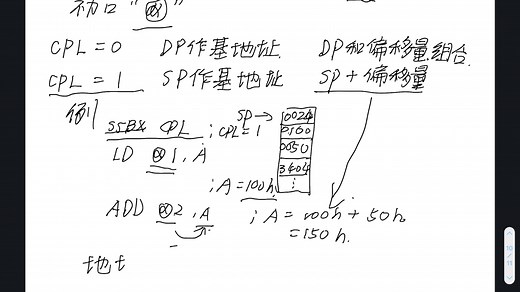 初口"@"
CPL=0 DP作基地址. DP和偏移量组合.
CPL=1 SP作基地址 SP+偏移量
例
SSBX CPL ;CPL=1
SP→ 0024
0100
0050
3404
⋮
LD @1,A
;A=100h
ADD @2,A ;A=100h+50h
=150h.
地t
10
11